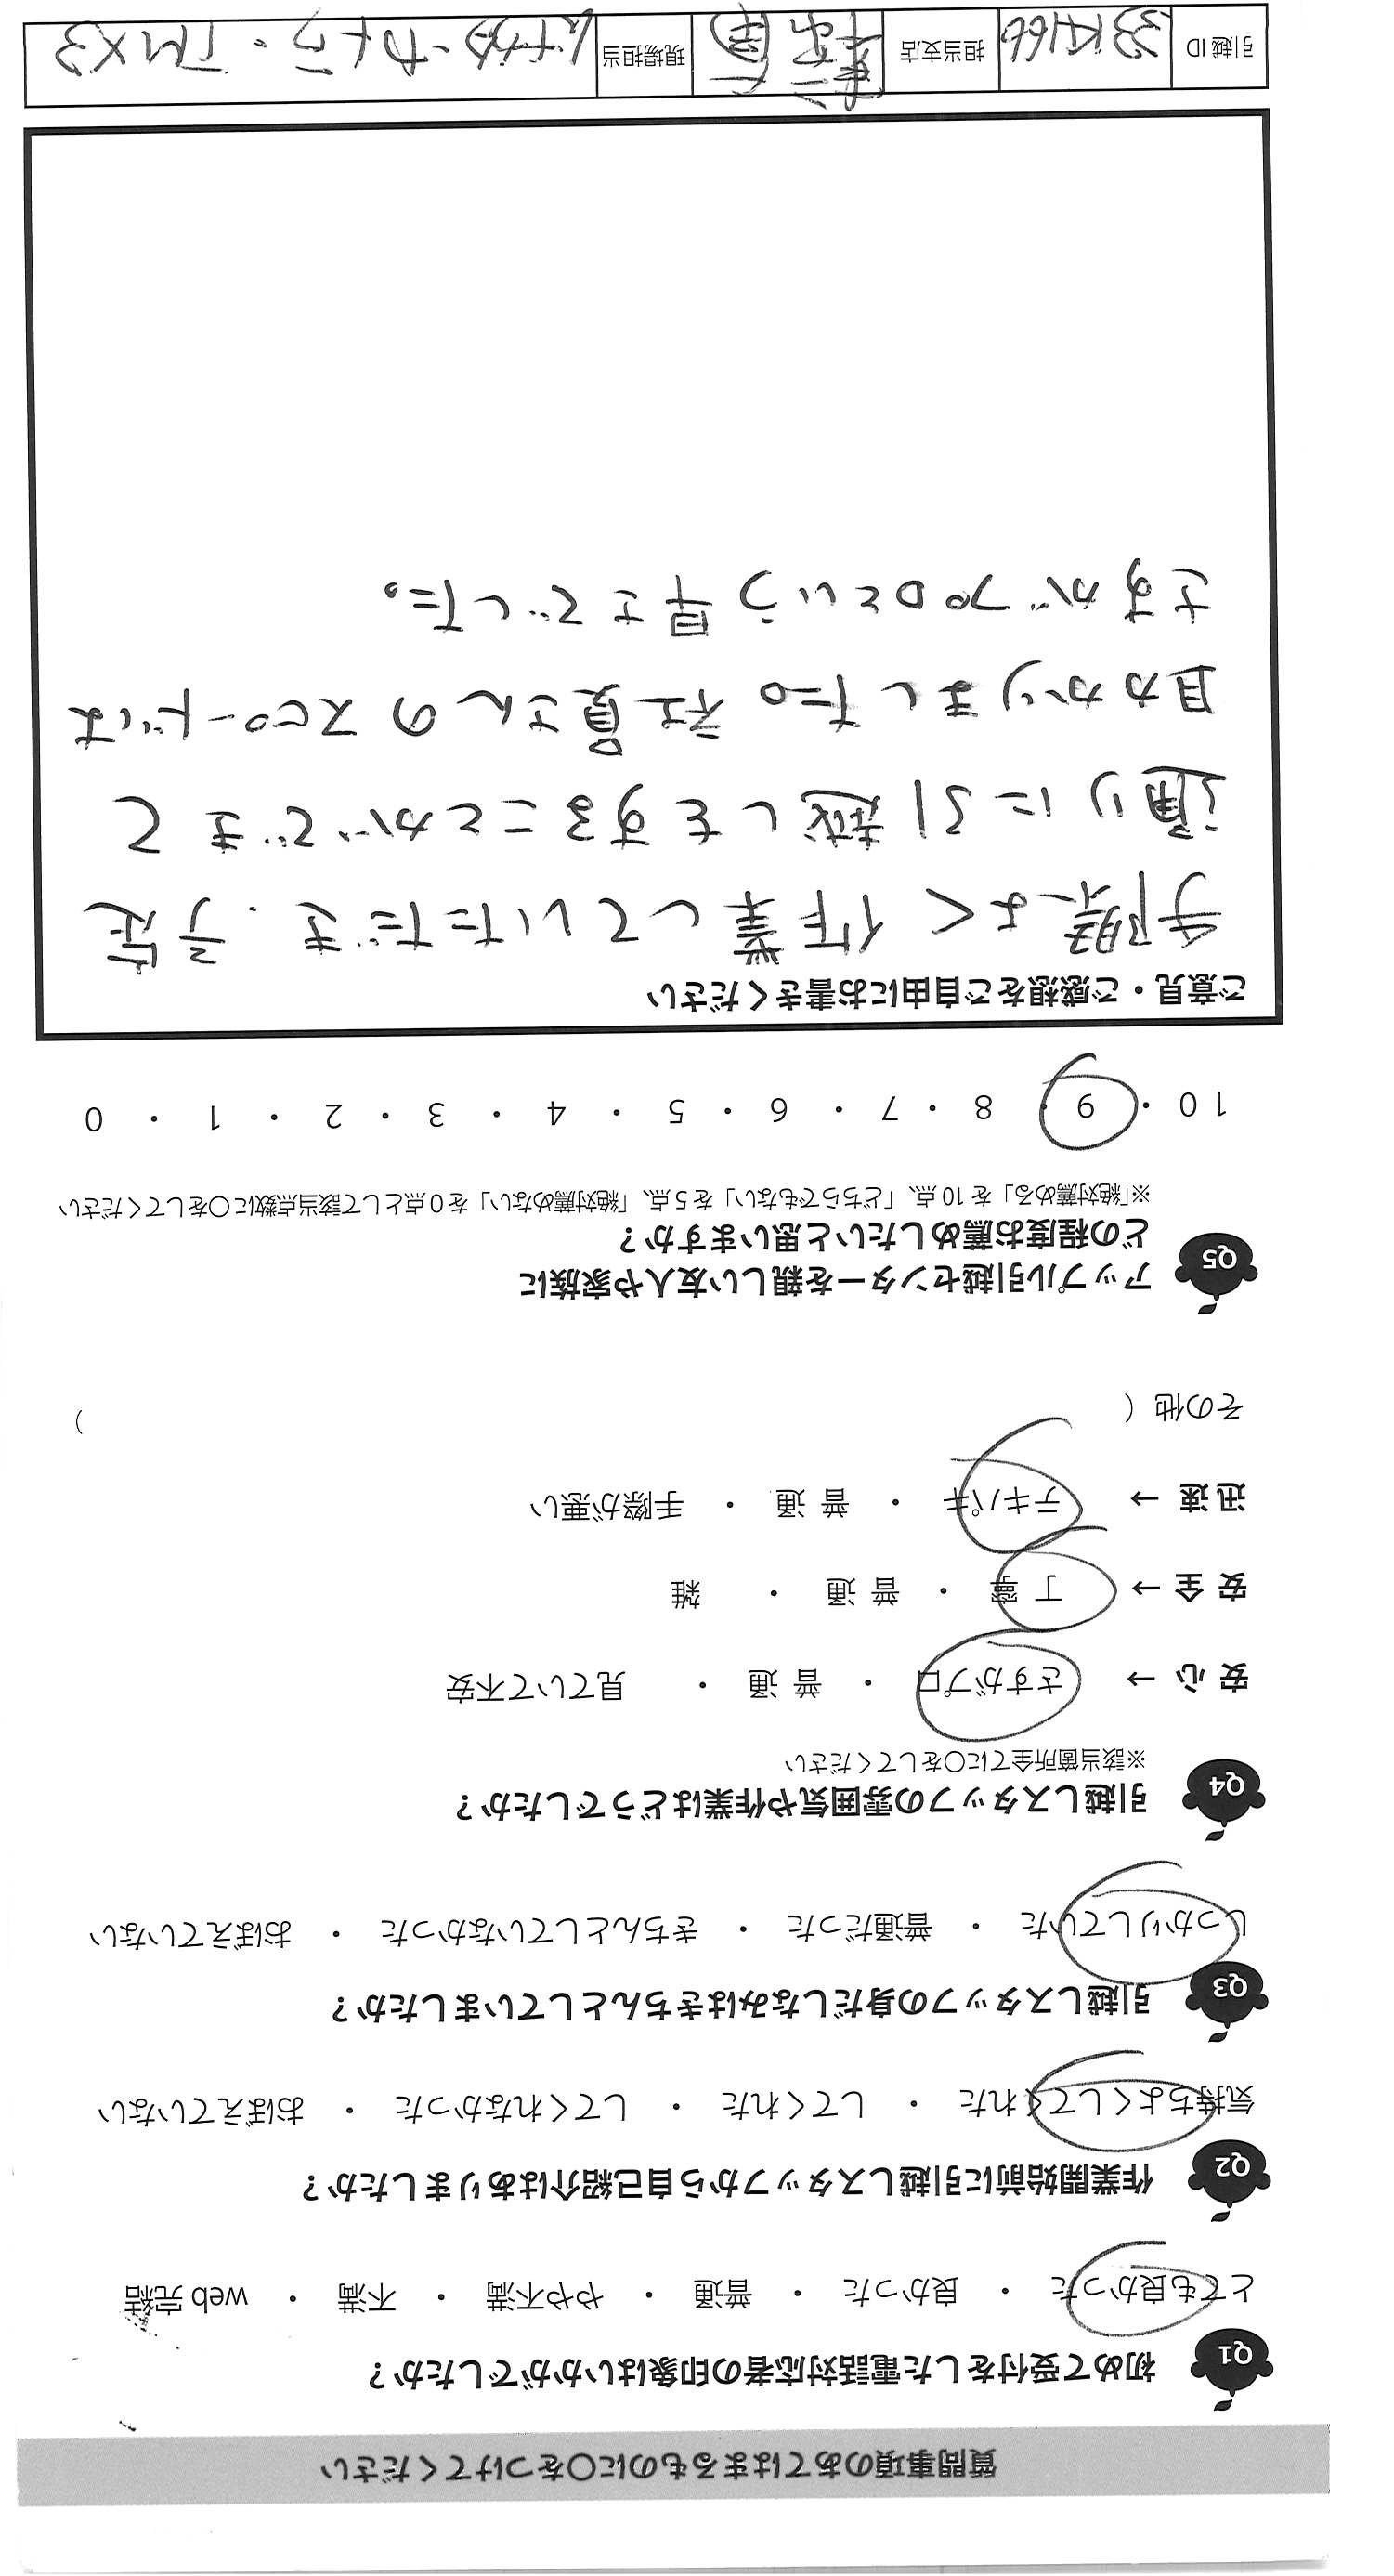 質問事項のあてはまるものに〇をつけてください
Q1 初めて受付をした電話対応者の印象はいかがでしたか？
とても良かった ・ 良かった ・ 普通 ・ やや不満 ・ 不満 ・ web 完結
Q2 作業開始前に引越しスタッフから自己紹介はありましたか？
気持ちよくしてくれた ・ してくれた ・ してくれなかった ・ おぼえていない
Q3 引越しスタッフの身だしなみはきちんとしていましたか？
しっかりしていた ・ 普通だった ・ きちんとしていなかった ・ おぼえていない
Q4 引越しスタッフの雰囲気や作業はどうでしたか？
※該当箇所全てに〇をしてください
安 心 → さすがプロ ・ 普 通 ・ 見ていて不安
安 全 → 丁 寧 ・ 普 通 ・ 雑
迅 速 → テキパキ ・ 普 通 ・ 手際が悪い
その他（ ）
Q5 アップル引越センターを親しい友人や家族に
どの程度お薦めしたいと思いますか？
※「絶対薦める」を 10 点、「どちらでもない」を 5 点、「絶対薦めない」を 0 点として該当点数に〇をしてください
10 ・ 9 ・ 8 ・ 7 ・ 6 ・ 5 ・ 4 ・ 3 ・ 2 ・ 1 ・ 0
ご意見・ご感想をご自由にお書きください
手際よく作業していただき、予定
通りに引越しをすることができて
助かりました。社員さんのスピードは
さすがプロという早さでした。
引越 ID 担当支店 現場担当